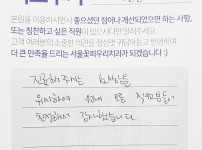 본원을 이용하시면서 좋으셨던 점이나 개선되었으면 하는 사항,
또는 칭찬하고 싶은 직원이 있으시다면 알려주세요.
고객 여러분의 소중한 의견을 정성껏 귀담아듣고 반영하여
더 큰 만족을 드리는 서울꽃피우리치과가 되겠습니다 :)
진료해 주시는
위시하여 모든 직원분들
친절하게 감사합니다